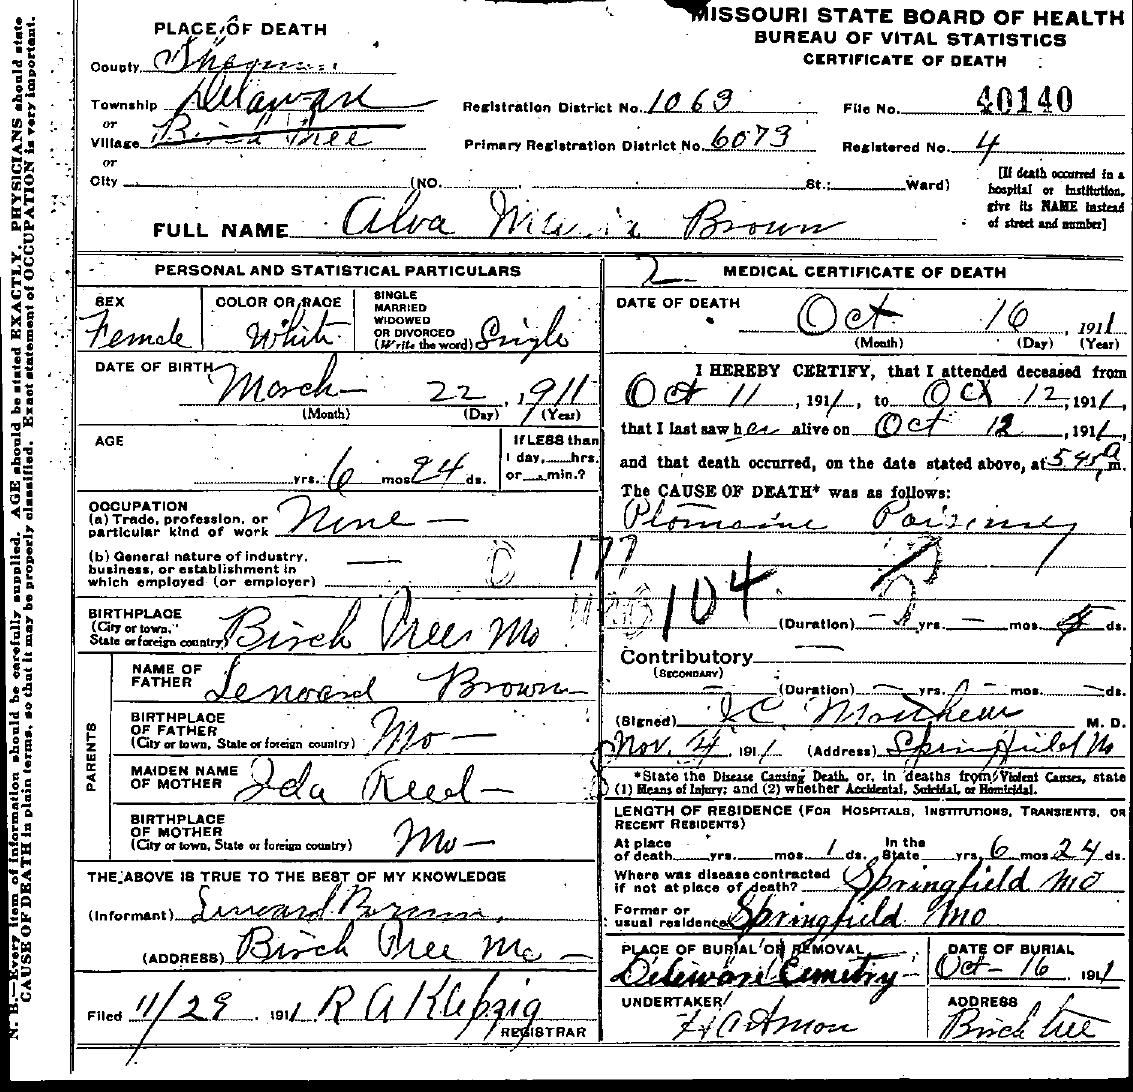 MISSOURI STATE BOARD OF HEALTH
BUREAU OF VITAL STATISTICS
CERTIFICATE OF DEATH
PLACE OF DEATH
County
Township Delaware
or
Village Birch Tree
or
City (NO. St.; Ward)
Registration District No. 1063
Primary Registration District No. 6073
File No. 40140
Registered No. 4
[If death occurred in a
hospital or institution,
give its NAME instead
of street and number]
FULL NAME Alva Brown
PERSONAL AND STATISTICAL PARTICULARS
SEX
Female
COLOR OR RACE
White
SINGLE
MARRIED
WIDOWED
OR DIVORCED
(Write the word) Single
DATE OF BIRTH
March 22, 1911
(Month) (Day) (Year)
AGE
yrs. 6 mos. 24 ds.
If LESS than
1 day, hrs.
or min.?
OCCUPATION
(a) Trade, profession, or
particular kind of work None
(b) General nature of industry,
business, or establishment in
which employed (or employer)
BIRTHPLACE
(City or town,
State or foreign country) Birch Tree Mo
PARENTS
NAME OF
FATHER Brown
BIRTHPLACE
OF FATHER
(City or town, State or foreign country) Mo
MAIDEN NAME
OF MOTHER Ida Reed
BIRTHPLACE
OF MOTHER
(City or town, State or foreign country) Mo
THE ABOVE IS TRUE TO THE BEST OF MY KNOWLEDGE
(Informant)
(ADDRESS) Birch Tree Mo
Filed 11/29, 1911 R A Klepzig
REGISTRAR
2 MEDICAL CERTIFICATE OF DEATH
DATE OF DEATH
Oct 16, 1911
(Month) (Day) (Year)
I HEREBY CERTIFY, that I attended deceased from
Oct 11, 1911, to Oct 12, 1911,
that I last saw her alive on Oct 12, 1911,
and that death occurred, on the date stated above, at 545 a m.
The CAUSE OF DEATH* was as follows:
Ptomaine Poisoning
177
104
(Duration) yrs. mos. ds.
Contributory
(SECONDARY)
(Duration) yrs. mos. ds.
(Signed) M. D.
Nov. 4, 1911 (Address) Springfield Mo
*State the Disease Causing Death, or, in deaths from Violent Causes, state
(1) Means of Injury; and (2) whether Accidental, Suicidal, or Homicidal.
LENGTH OF RESIDENCE (FOR HOSPITALS, INSTITUTIONS, TRANSIENTS, OR
RECENT RESIDENTS)
At place
of death yrs. mos. 1 ds.
In the
State yrs. 6 mos. 24 ds.
Where was disease contracted
if not at place of death? Springfield Mo
Former or
usual residence Springfield Mo
PLACE OF BURIAL OR REMOVAL
Deleware Cemetry
DATE OF BURIAL
Oct 16, 1911
UNDERTAKER
ADDRESS
Birch Tree
N. B.—Every item of information should be carefully supplied. AGE should be stated EXACTLY. PHYSICIANS should state
CAUSE OF DEATH in plain terms, so that it may be properly classified. Exact statement of OCCUPATION is very important.